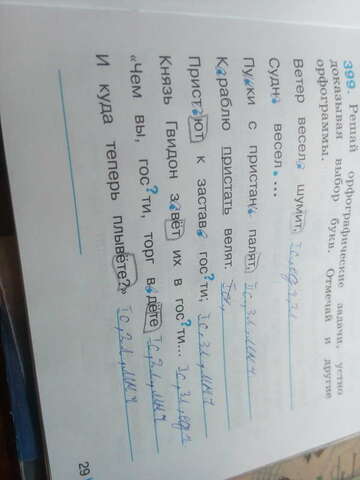 399. Реши орфографические задачи, устно
доказывая выбор букв. Отмечай и другие
орфограммы.
Ветер весел. шумит, I с, ед.ч, 3 л
Судн. весел. ...
Пу.ки с пристан. палят, II с, 3 л, мн ч
К.раблю пристать велят.
Прист.ют к застав. гос?ти; I с, 3 л, мн ч
Князь Гвидон з.вёт их в гос?ти... I с, 3 л, ед ч
«Чем вы, гос?ти, торг в.дёте I с, 2 л, мн ч
И куда теперь плывёте?» I с, 2 л, мн ч
29